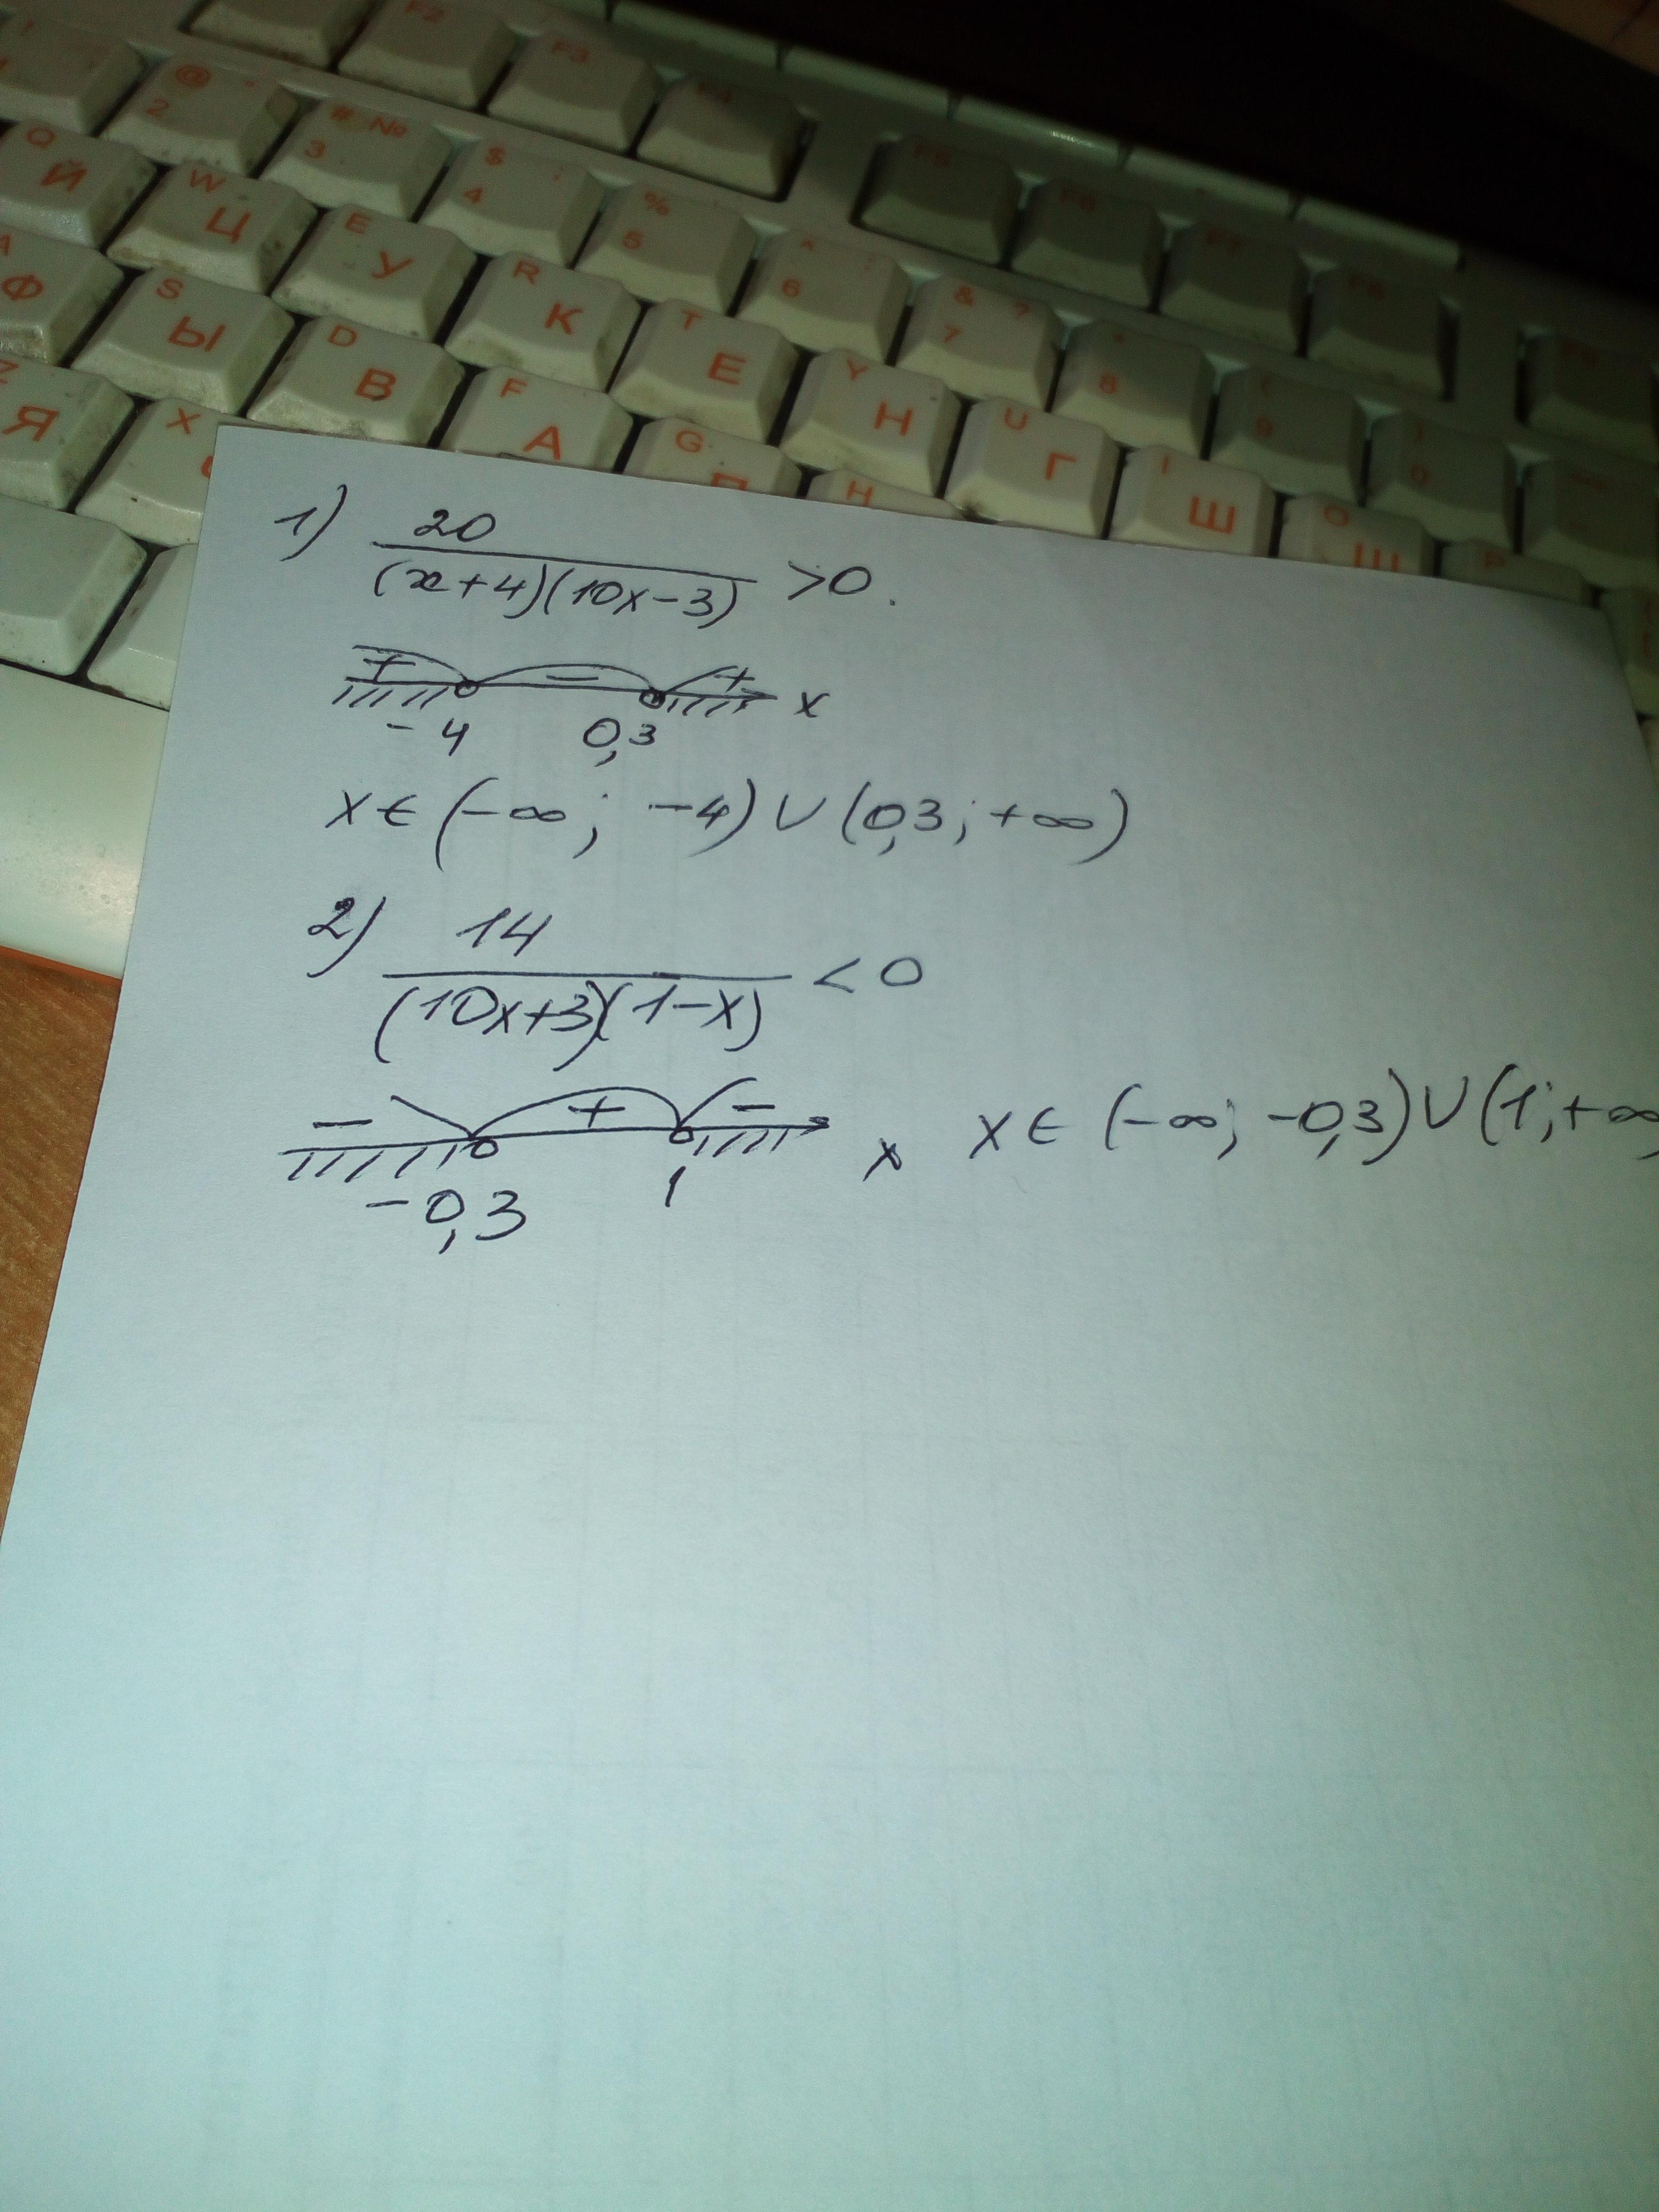 F2
F3
F4
F5
F6
F7
F8
@ 2
# № 3
$ ; 4
% 5
^ : 6
& ? 7
* 8
( 9
) 0
Q Й
W Ц
E У
R К
T Е
Y Н
U Г
I Ш
O Щ
P
A Ф
S Ы
D В
F А
G П
H
Z Я
X
1) 20
(x+4)(10x-3) >0.
+ - +
-4 0,3 x
x∈(-∞; -4)∪(0,3;+∞)
2) 14
(10x+3)(1-x) <0
- + -
-0,3 1 x x∈(-∞; -0,3)∪(1;+∞)